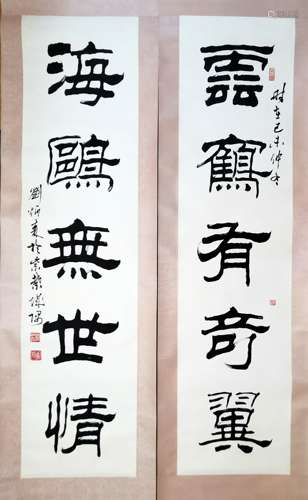 雲鶴有奇翼
時在己未仲冬
海鷗無世情
劉炳森於京華